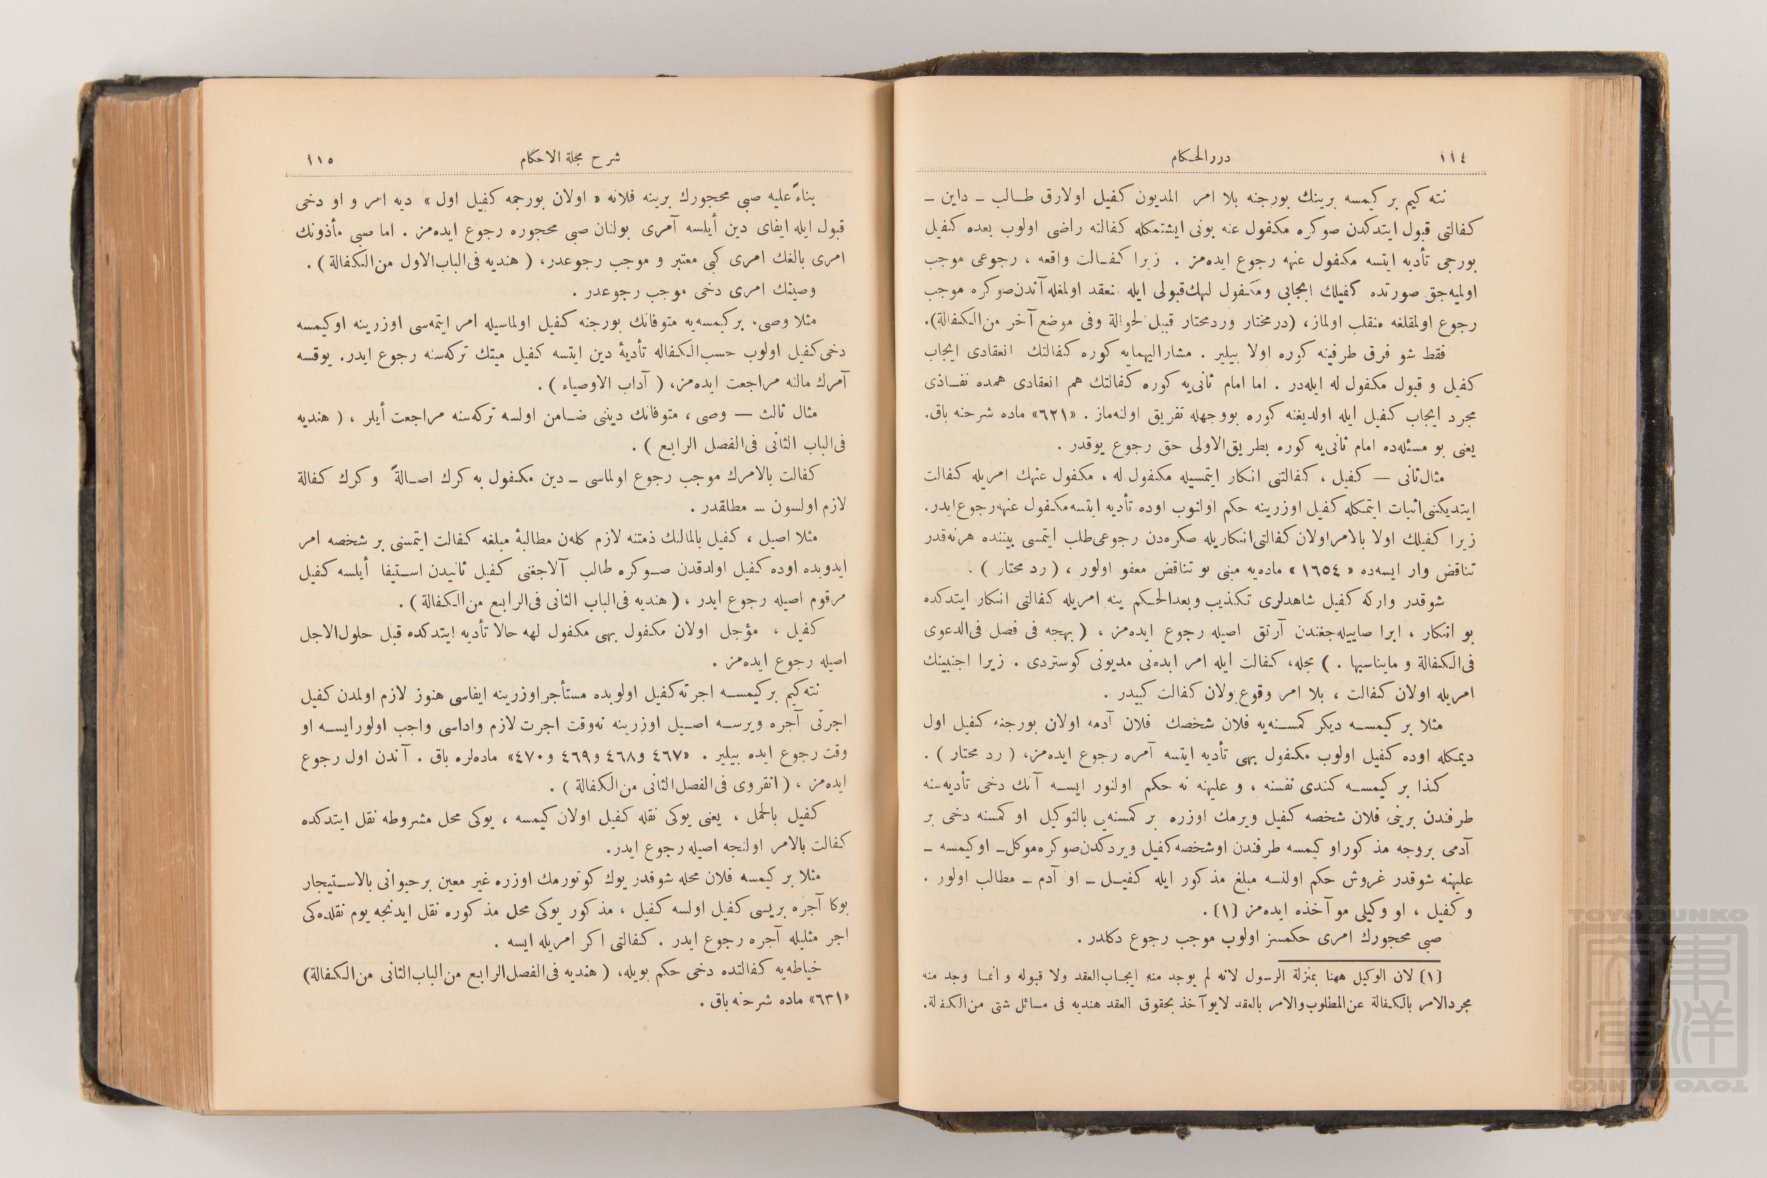 ١١٤
درر الحكام
نته كيم بر كيمسه برينك بورجنه بلا امر المديون كفيل اولارق طالب ـ داين ـ
كفالتى قبول ايتدكدن صوكره مكفول عنه بونى ايشتمكله كفالنه راضى اولوب بعده كفيل
بورجى تأديه ايتسه مكفول عنهه رجوع ايده‌مز . زيرا كفالت واقعه ، رجوعى موجب
اولميه‌جق صورتده كفيلك ايجابى ومكفول لهك قبولى ايله منعقد اولمغله آندن صوكره موجب
رجوع اولمقلغه منقلب اولماز، (درمختار وردمحتار قبيل الحوالة وفى موضع آخر من الكفالة).
فقط شو فرق طرفينه كوره اولا بيلير . مشاراليهمايه كوره كفالتك انعقادى ايجاب
كفيل و قبول مكفول له ايله‌در . اما امام ثانى‌يه كوره كفالتك هم انعقادى همده نفاذى
مجرد ايجاب كفيل ايله اولديغنه كوره بووجهله تفريق اولنه‌ماز . «٦٢١» ماده شرحنه باق.
يعنى بو مسئله‌ده امام ثانى‌يه كوره بطريق الاولى حق رجوع يوقدر .
مثال ثانى — كفيل ، كفالتنى انكار ايتمسيله مكفول له ، مكفول عنهك امريله كفالت
ايتديكنى اثبات ايتمكله كفيل اوزرينه حكم اولنوب اوده تأديه ايتسه مكفول عنهه رجوع ايدر.
زيرا كفيلك اولا بالامر اولان كفالتى انكاريله صكره‌دن رجوعى طلب ايتمسى بيننده هرنه‌قدر
تناقض وار ايسه‌ده «١٦٥٤» ماده‌يه مبنى بو تناقض معفو اولور ، ( رد محتار ) .
شوقدر واركه كفيل شاهدلرى تكذيب وبعدالحكم ينه امريله كفالتى انكار ايتدكده
بو انكار ، ابرا صاييله‌جغندن آرتق اصيله رجوع ايده‌مز ، ( بهجه فى فصل فى الدعوى
فى الكفالة و مايناسبها . ) مجله، كفالت ايله امر ايده‌نى مديونى كوستردى . زيرا اجنبينك
امريله اولان كفالت ، بلا امر وقوع بولان كفالت كبيدر .
مثلا بر كيمسه ديكر كمسنه‌يه فلان شخصك فلان آدمه اولان بورجنه كفيل اول
ديمكله اوده كفيل اولوب مكفول بهى تأديه ايتسه آمره رجوع ايده‌مز، ( رد محتار ) .
كذا بر كيمسه كندى نفسنه ، و عليهنه نه حكم اولنور ايسه آنك دخى تأديه‌سنه
طرفندن برينى فلان شخصه كفيل ويرمك اوزره بر كمسنه‌يى بالتوكيل او كمسنه دخى بر
آدمى بروجه مذكور او كيمسه طرفندن اوشخصه كفيل ويردكدن صوكره موكل ـ اوكيمسه ـ
عليهنه شوقدر غروش حكم اولنسه مبلغ مذكور ايله كفيل ـ او آدم ـ مطالب اولور .
و كفيل ، او وكيلى موآخذه ايده‌مز (١) .
صبى محجورك امرى حكمسز اولوب موجب رجوع دكلدر .
(١) لان الوكيل ههنا بمنزلة الرسول لانه لم يوجد منه ايجاب العقد ولا قبوله وانما وجد منه
مجرد الامر بالكفالة عن المطلوب والامر بالعقد لايوآخذ بحقوق العقد هنديه فى مسائل شتى من الكفالة.
شرح مجلة الاحكام
١١٥
بناءً عليه صبى محجورك برينه فلانه « اولان بورجمه كفيل اول » ديه امر و او دخى
قبول ايله ايفاى دين أيلسه آمرى بولنان صبى محجوره رجوع ايده‌مز . اما صبى مأذونك
امرى بالغك امرى كبى معتبر و موجب رجوعدر، ( هنديه فى الباب الاول من الكفالة ) .
وصيتك امرى دخى موجب رجوعدر .
مثلا وصى، بركيمسه‌يه متوفانك بورجنه كفيل اولماسيله امر ايتمه‌سى اوزرينه اوكيمسه
دخى كفيل اولوب حسب الكفاله تأديۀ دين ايتسه كفيل ميتك تركه‌سنه رجوع ايدر. يوقسه
آمرك مالنه مراجعت ايده‌مز، ( آداب الاوصياء ) .
مثال ثالث — وصى ، متوفانك دينى ضامن اولسه تركه‌سنه مراجعت أيلر ، ( هنديه
فى الباب الثانى فى الفصل الرابع ) .
كفالت بالامرك موجب رجوع اولماسى ـ دين مكفول به كرك اصالةً و كرك كفالة
لازم اولسون ـ مطلقدر .
مثلا اصيل ، كفيل بالمالك ذمتنه لازم كلەن مطالبۀ مبلغه كفالت ايتمسنى بر شخصه امر
ايدوبده اوده كفيل اولدقدن صوكره طالب آلاجغنى كفيل ثانيدن استيفا أيلسه كفيل
مرقوم اصيله رجوع ايدر ، ( هنديه فى الباب الثانى فى الرابع من الكفالة ) .
كفيل ، مؤجل اولان مكفول بهى مكفول لهه حالا تأديه ايتدكده قبل حلول الاجل
اصيله رجوع ايده‌مز .
نته كيم بركيمسه اجرته كفيل اولوبده مستأجر اوزرينه ايفاسى هنوز لازم اولمدن كفيل
اجرتى آجره ويرسه اصيل اوزرينه نەوقت اجرت لازم واداسى واجب اولورايسه او
وقت رجوع ايده بيلير . «٤٦٧ و٤٦٨ و٤٦٩ و٤٧٠» ماده‌لره باق . آندن اول رجوع
ايده‌مز ، ( انقروى فى الفصل الثانى من الكفالة ) .
كفيل بالحمل ، يعنى يوكى نقله كفيل اولان كيمسه ، يوكى محل مشروطه نقل ايتدكده
كفالت بالامر اولنجه اصيله رجوع ايدر.
مثلا بر كيمسه فلان محله شوقدر يوك كوتورمك اوزره غير معين برحيوانى بالاستيجار
بوكا آجره بريسى كفيل اولسه كفيل ، مذكور يوكى محل مذكوره نقل ايدنجه يوم نقلده‌كى
اجر مثليله آجره رجوع ايدر . كفالتى اكر امريله ايسه .
خياطه‌يه كفالتده دخى حكم بويله، ( هنديه فى الفصل الرابع من الباب الثانى من الكفالة)
«٦٣١» ماده شرحنه باق .